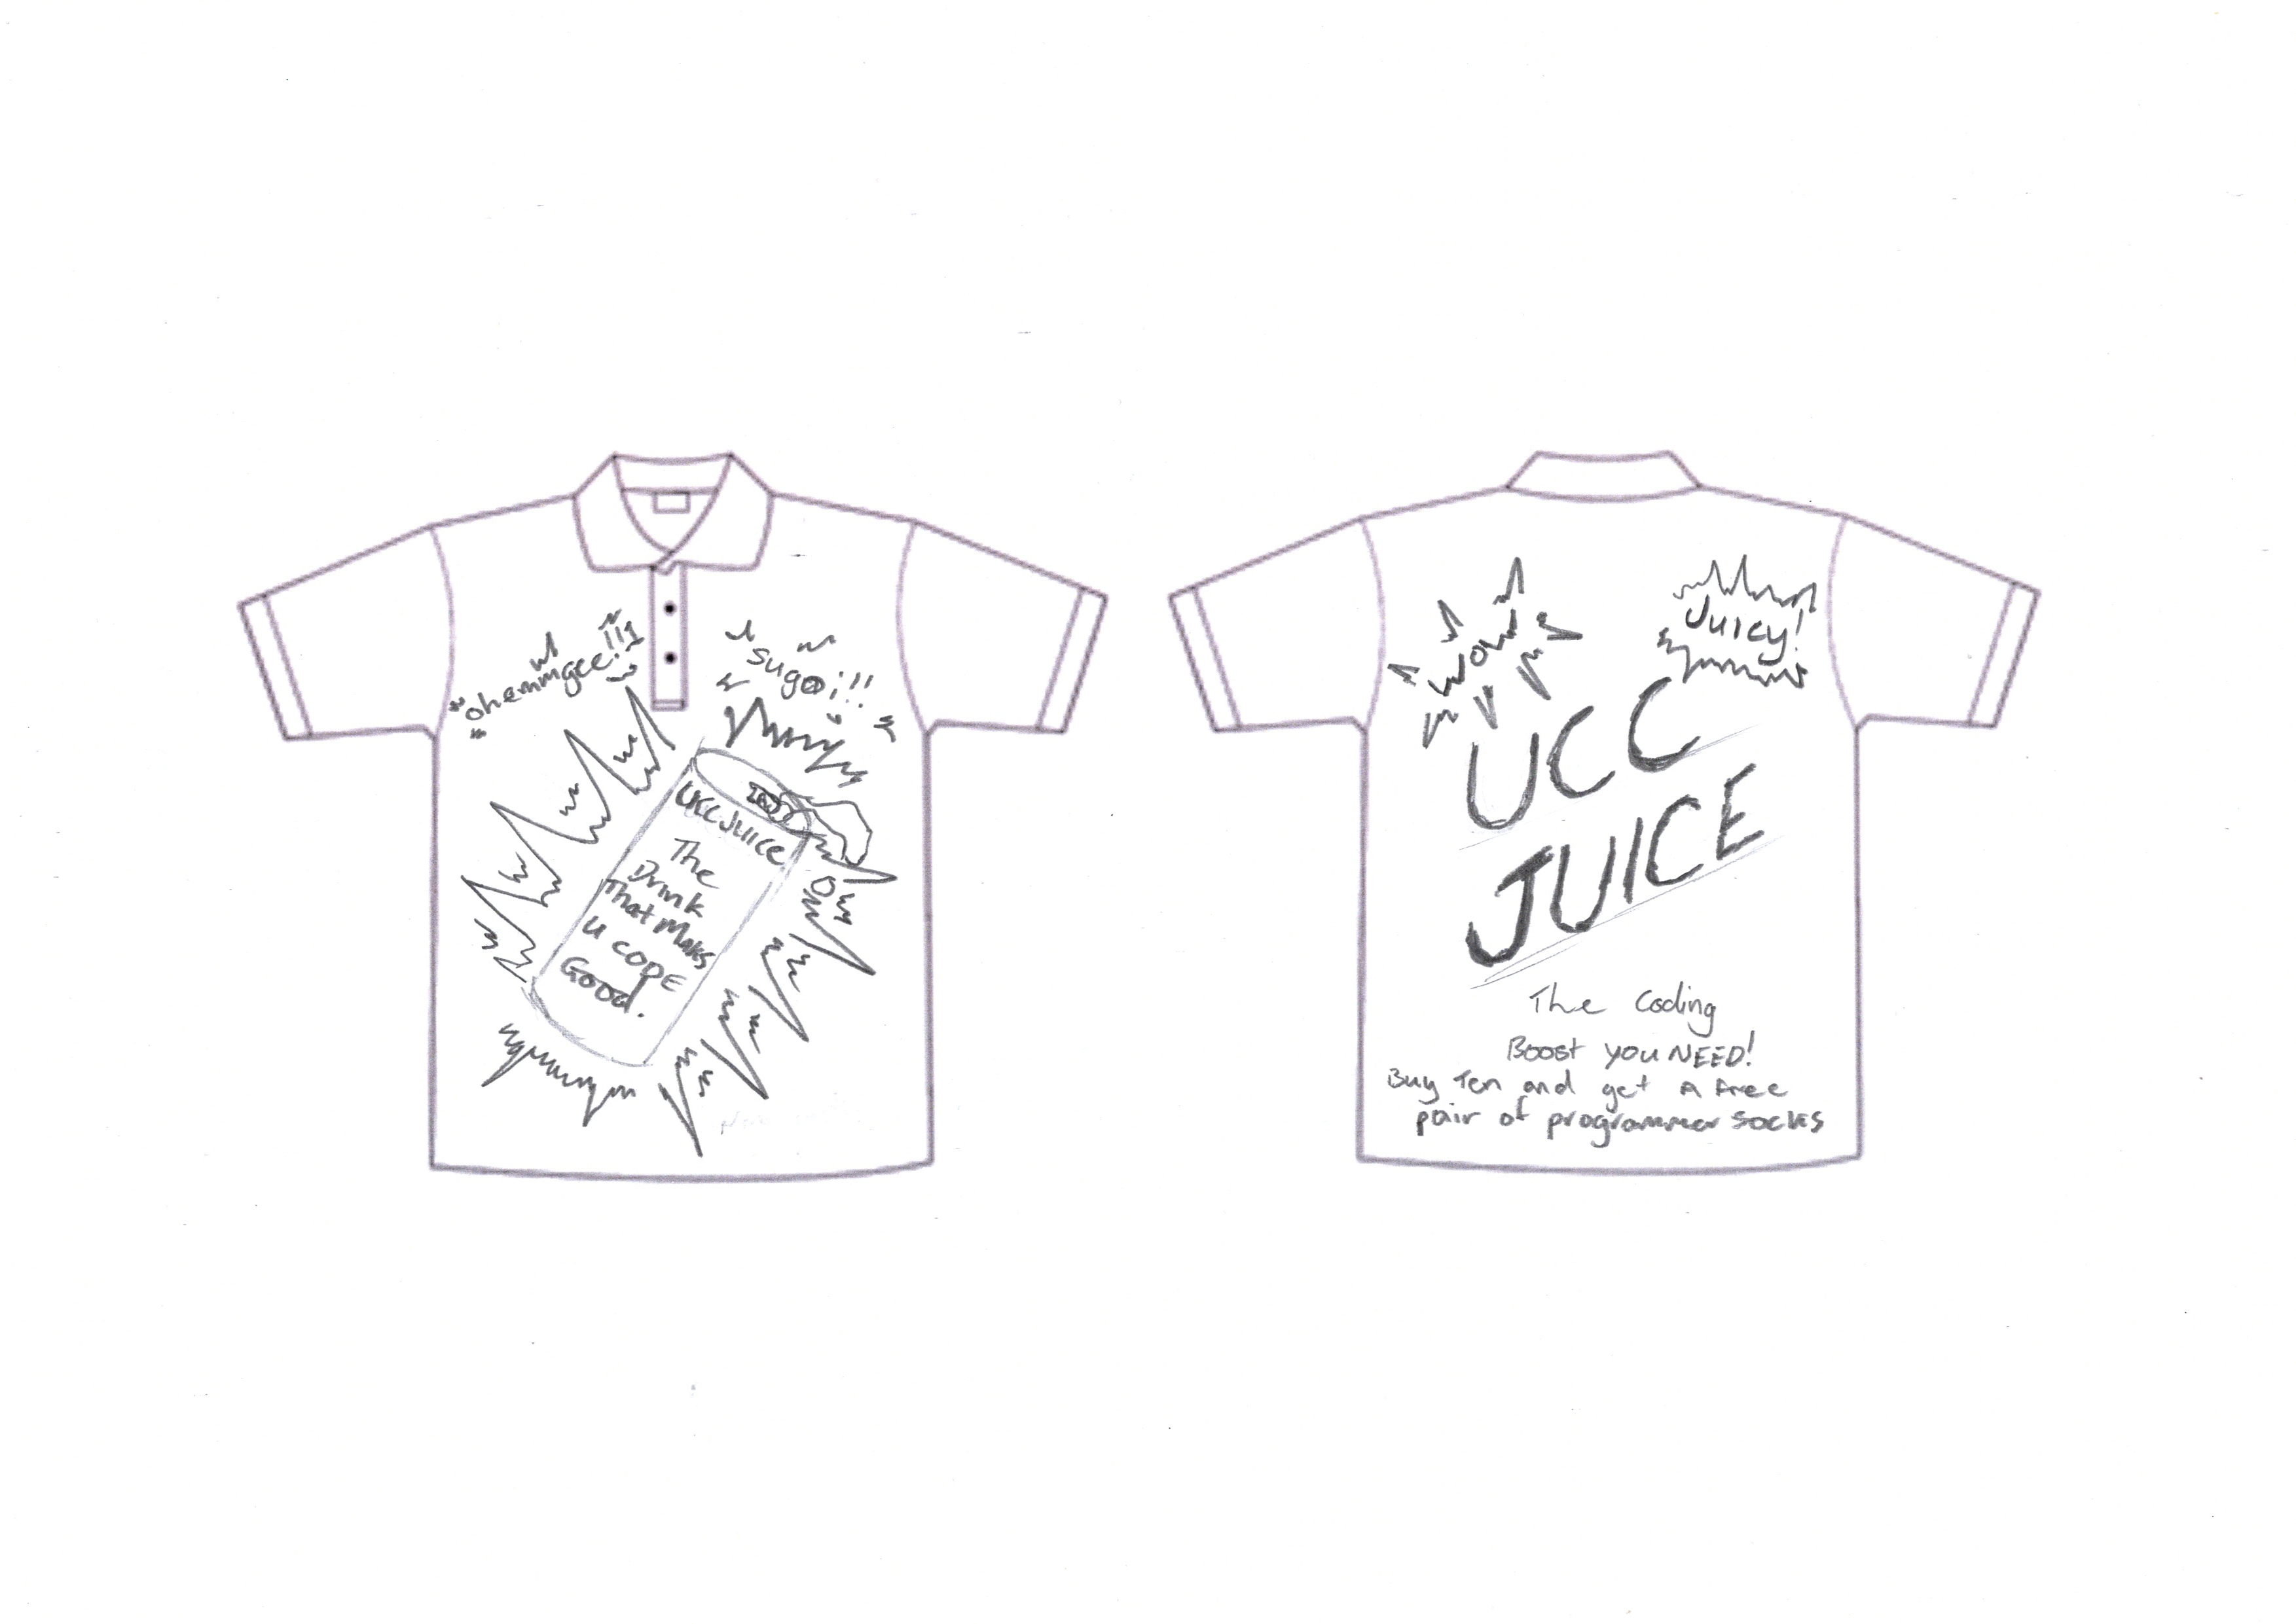 ohemmgee!!!
sugoi!!
UCC JUICE
The
Drink
That Makes
u CODE
Good.
Wow
Juicy!
UCC
JUICE
The Coding
Boost you NEED!
Buy Ten and get A free
pair of programmer socks